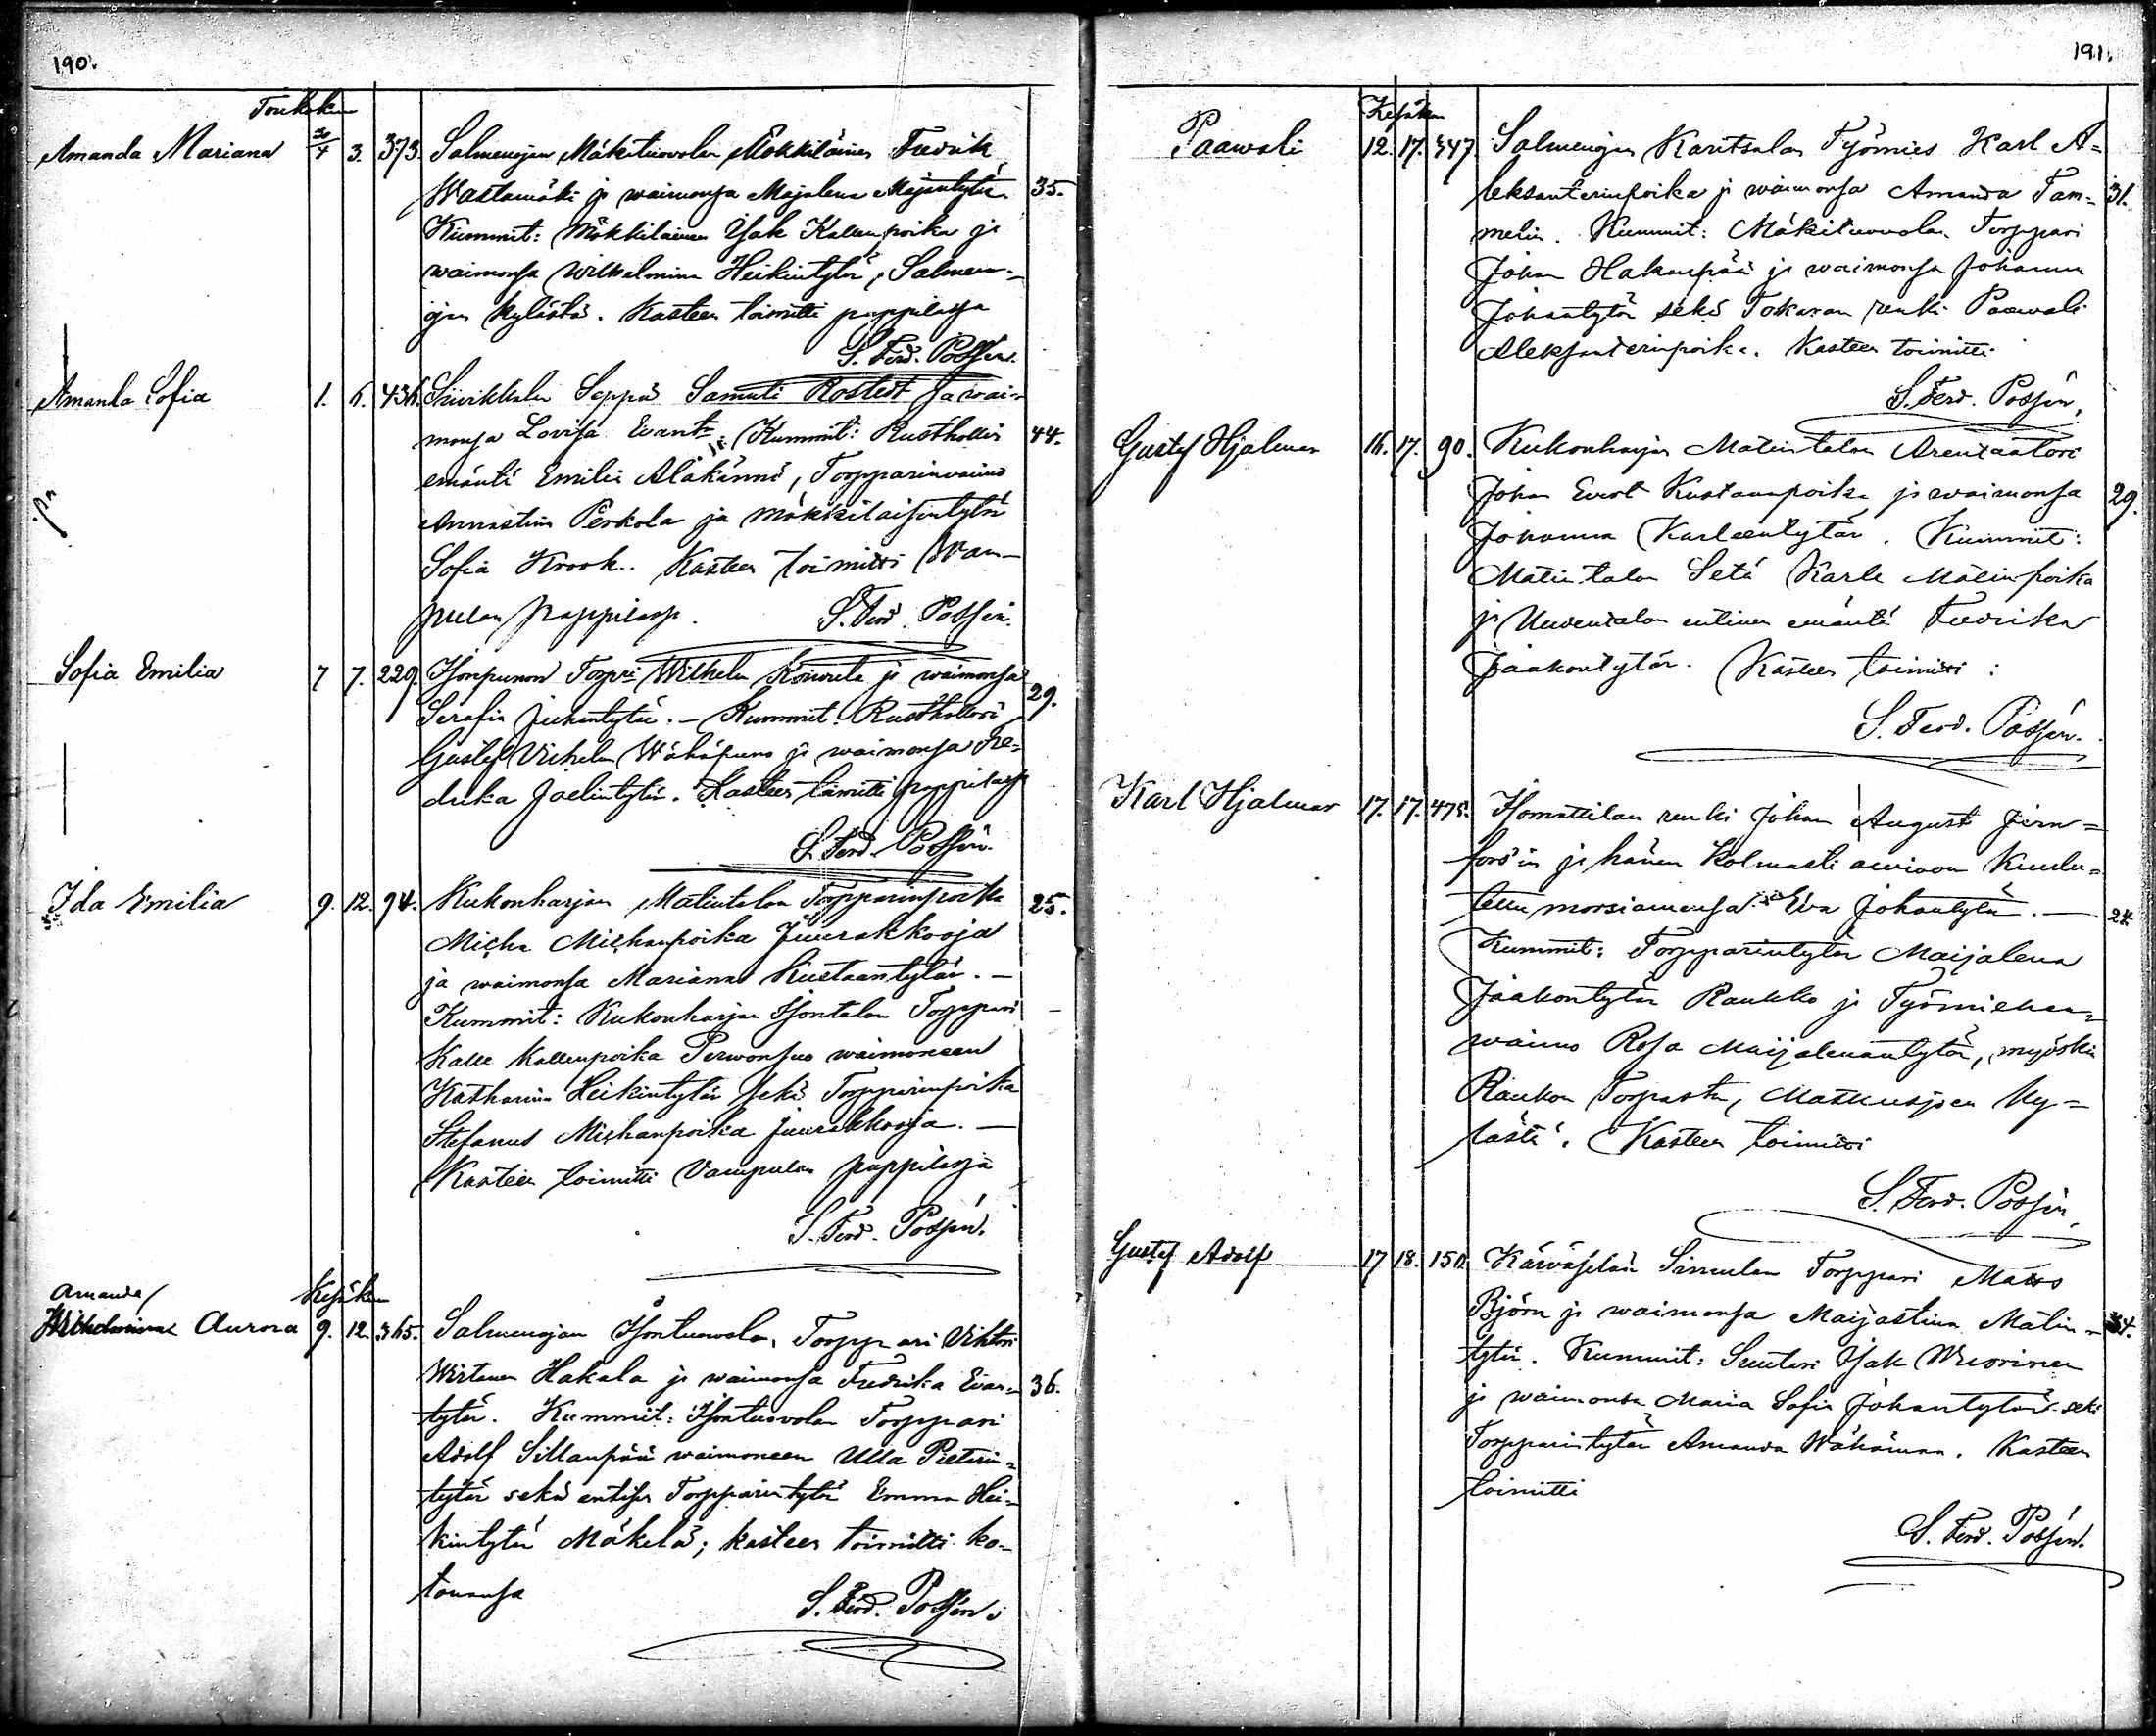 190.
Toukokuu
Amanda Mariana 2/4 3. 373. Salmenojan Mäkituovolan Mökkiläinen Fredrik
Wastamäki ja waimonsa Majalena Majantytär. 35.
Kummit: Mökkiläinen Isak Kallenpoika ja
waimonsa Wilhelmina Heikintytär, Salmen-
ojan kylästä. Kasteen toimitti pappilassa
S. Ferd. Possén.
Amanda Sofia 1. 6. 436. Seppä Samuli Rostedt ja wai-
monsa Lovisa Evantr. Kummit: Rusthollin 44.
emäntä Emilia Alakännö, Torpparinwaimo
Annastina Perkola ja mökkiläisentytär
Sofia Krook. Kasteen toimitti Wam-
pulan pappilassa. S. Ferd. Possén.
Sofia Emilia 7 7. 229. Isonpunon Torpri Wilhelm Koiwula ja waimonsa 29.
Serafia Juhantytär. - Kummit: Rusthollari
Gustaf Vihelm Wähäpuno ja waimonsa Fre-
drika Joelintytär. Kasteen toimitti pappilassa
S. Ferd. Possén.
Ida Emilia 9. 12. 94. Kukonharjan Matintalon Torpparinpoika 25.
Micha Michanpoika Juurakkooja
ja waimonsa Mariana Kustaantytär. -
Kummit: Kukonharjan Isontalon Torppari
Kalle Kallenpoika Perwonsuo waimoneen
Katharina Heikintytär sekä Torpparinpoika
Stefanus Michanpoika Juurakkooja. -
Kasteen toimitti Vampulan pappilassa
S. Ferd. Possén.
Amanda Kesäkuu
Wilhelmina Aurora 9. 12. 365. Salmenojan Isontuovolan Torppari Viktori
Wirtanen Hakala ja waimonsa Fredrika Evan- 36.
tytär. Kummit: Isontuovolan Torppari
Adolf Sillanpää waimoneen Ulla Pieterin-
tytär sekä entisen Torpparintytär Emma Hei-
kintytär Mäkelä; kasteen toimitti ko-
tonansa
S. Ferd. Possén.
191.
Kesäkuu
Paawali 12. 17. 447. Salmenojan Karitsalan Työmies Karl A-
leksanterinpoika ja waimonsa Amanda Tam- 31.
melin. Kummit: Mäkituovolan Torppari
Johan Hakanpää ja waimonsa Johanna
Johantytär sekä Tokaran renki Paawali
Aleksanterinpoika. Kasteen toimitti
S. Ferd. Possén.
Gustaf Hjalmar 16. 17. 90. Kukonharjan Matintalon Arentaatori
Johan Evert Kustaanpoika ja waimonsa 29.
Johanna Karleentytär. Kummit:
Matintalon Setä Karle Matinpoika
ja Uudentalon entinen emäntä Fredrika
Jaakontytär. Kasteen toimitti:
S. Ferd. Possén.
Karl Hjalmar 17. 17. 475. Homattilan renki Johan August Jern-
fors'in ja hänen kolmasti awioon kuulu-
tetun morsiamensa Eva Johantytär. - 24.
Kummit: Torpparintytär Maijalena
Jaakontytär Raukko ja Työmiehen-
waimo Rosa Maijalenantytär, myöskin
Raukon Torpasta, Matkusjoen ky-
lästä. Kasteen toimitti
S. Ferd. Possén.
Gustaf Adolf 17 18. 150. Kärväselän Simulan Torppari Matts
Björn ja waimonsa Maijastiina Matin- 34.
tytär. Kummit: Suutari Isak Wuorinen
ja waimonsa Maria Sofia Johantytär sekä
Torpparintytär Amanda Wähämaa. Kasteen
toimitti
S. Ferd. Possén.